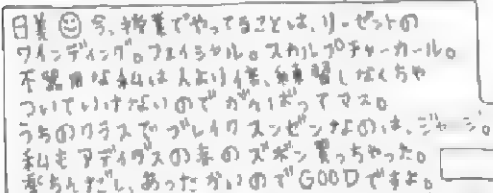 日美 ☺ 今、授業でやってることは、リーゼントの
ワインディング。フェイシャル。スカルプチャーカール。
不器用な私は人より1倍、練習しなくちゃ
ついていけないのでがんばってマス。
うちのクラスでブレイクスンゼンなのは、ジャージ。
私もアディダスの赤のズボン買っちゃった。
楽ちんだし、あったかいのでGOODですよ。